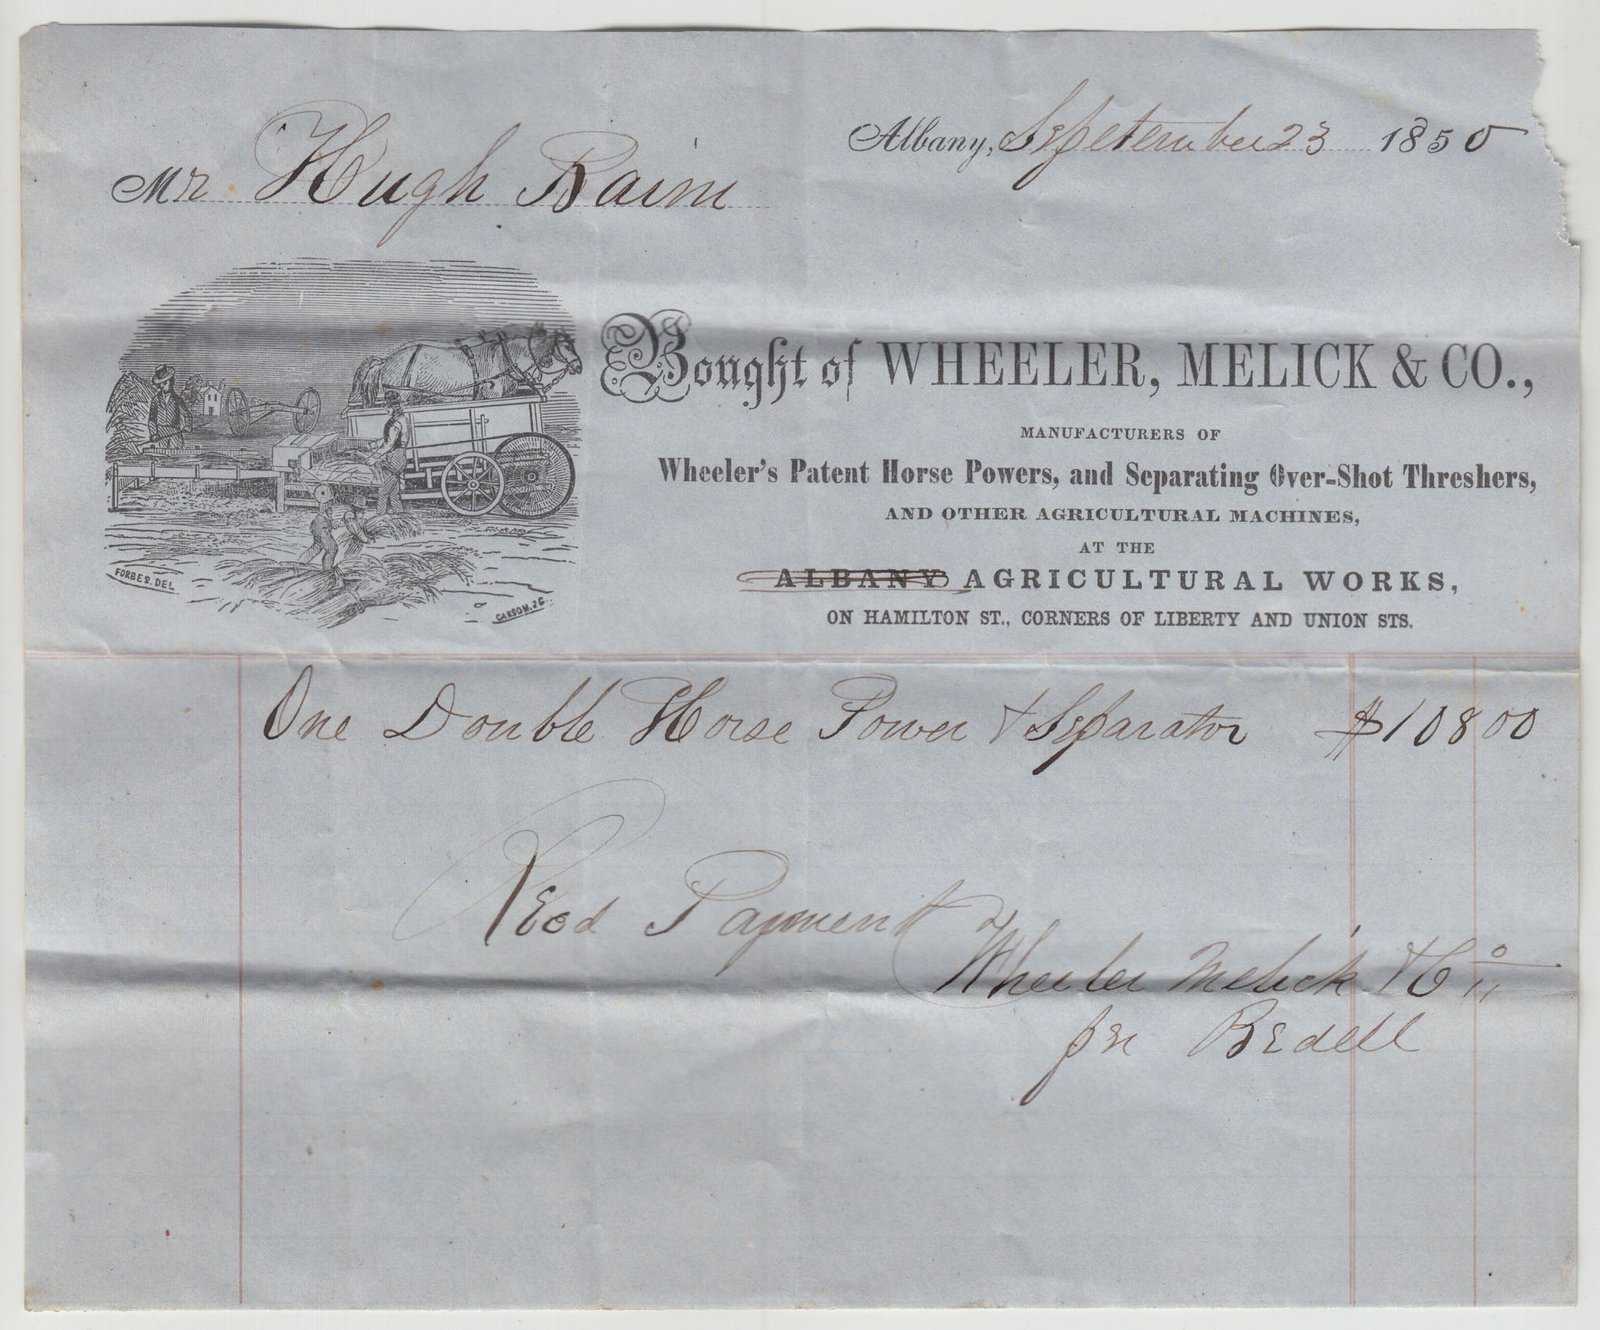 Albany, September 23 1850
Mr Hugh Raim
Bought of WHEELER, MELICK & CO.,
MANUFACTURERS OF
Wheeler's Patent Horse Powers, and Separating Over-Shot Threshers,
AND OTHER AGRICULTURAL MACHINES,
AT THE
ALBANY AGRICULTURAL WORKS,
ON HAMILTON ST., CORNERS OF LIBERTY AND UNION STS.
FORBES. DEL
CARSON. SC
One Double Horse Power & Separator $108 00
Recd Payment
Wheeler Melick & Co
per Bedell